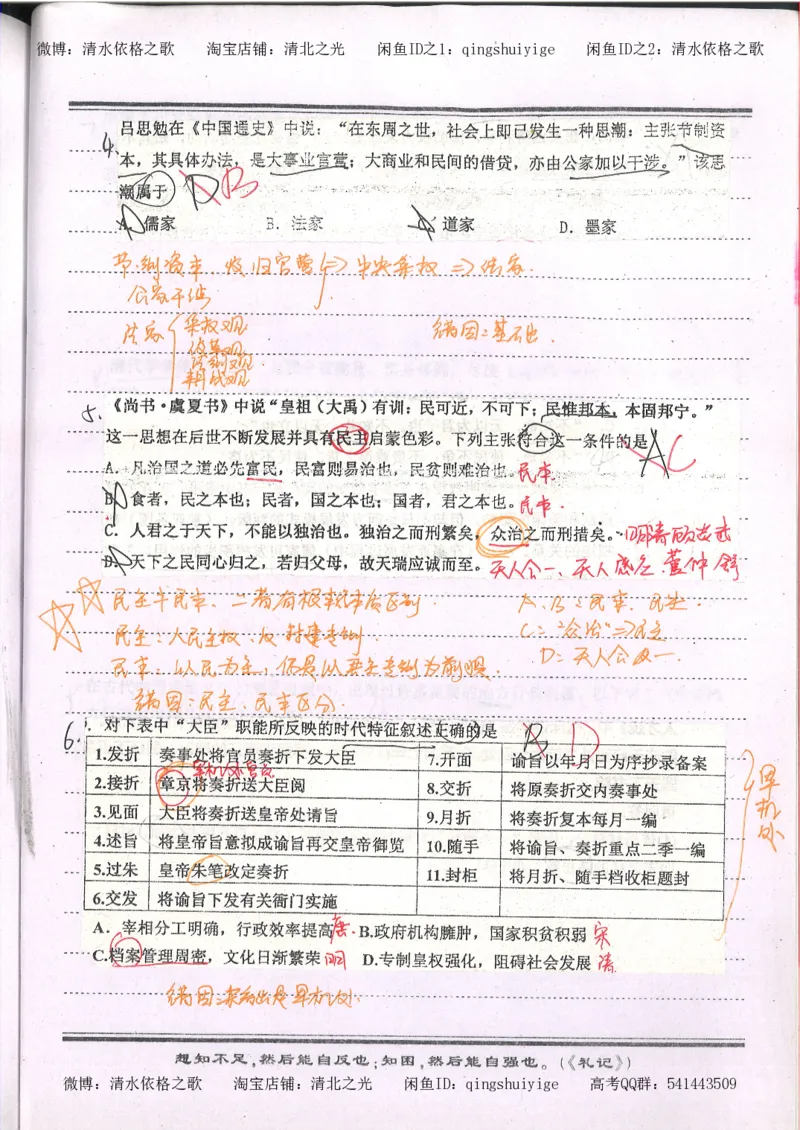 微博：清水依格之歌　　淘宝店铺：清北之光　　闲鱼ID之1：qingshuiyige　　闲鱼ID之2：清水依格之歌
4、吕思勉在《中国通史》中说：“在东周之世，社会上即已发生一种思潮：主张节制资
本，其具体办法，是大事业官营；大商业和民间的借贷，亦由公家加以干涉。”该思
潮属于 D B
A. 儒家　B. 法家　C. 道家　D. 墨家
节制资本、收归官营 => 中央集权 => 法家.
公家干涉
法家 集权观 错因：基础
变革观
法制观
5、《尚书·虞夏书》中说“皇祖（大禹）有训：民可近，不可下；民惟邦本，本固邦宁。”
这一思想在后世不断发展并具有民主启蒙色彩。下列主张符合这一条件的是 A C
A. 凡治国之道必先富民，民富则易治也，民贫则难治也。民本
B. 食者，民之本也；民者，国之本也；国者，君之本也。民本.
C. 人君之于天下，不能以独治也。独治之而刑繁矣，众治之而刑措矣。明清
D. 天下之民同心归之，若归父母，故天瑞应诚而至。天人合一、天人感应、董仲舒
民主≠民本、二者有根本区别. A、B：民本
民主：人民主权、反封建专制 C：“众治”=>民主
民本：以民为本，仍是以君主专制为前提. D：天人合一.
错因：民主、民本区分.
6、对下表中“大臣”职能所反映的时代特征叙述正确的是 B D
1.发折　奏事处将官员奏折下发大臣　7.开面　谕旨以年月日为序抄录备案
2.接折　章京将奏折送大臣阅　8.交折　将原奏折交内奏事处
3.见面　大臣将奏折送皇帝处请旨　9.月折　将奏折复本每月一编
4.述旨　将皇帝旨意拟成谕旨再交皇帝御览　10.随手　将谕旨、奏折重点二季一编
5.过朱　皇帝朱笔改定奏折　11.封柜　将月折、随手档收柜题封
6.交发　将谕旨下发有关衙门实施
军机处
A. 宰相分工明确，行政效率提高 唐.　B.政府机构臃肿，国家积贫积弱 宋
C.档案管理周密，文化日渐繁荣 明　D.专制皇权强化，阻碍社会发展 清
错因：没看出是军机处.
想知不足，然后能自反也；知困，然后能自强也。（《礼记》）
微博：清水依格之歌　　淘宝店铺：清北之光　　闲鱼ID：qingshuiyige　　高考QQ群：541443509